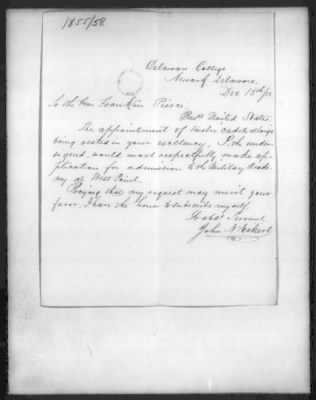 1855/58
Delaware College
Newark Delaware,
Dec 13th/55
To the Hon Franklin Pierce,
Pres. United States.
The appointment of twelve cadets at large
being vested in your excellency. I, the under-
signed, would most respectfully make ap-
plication for admission to the Military Acade-
my at West Point.
Hoping that my request may merit your
favor, I have the honor to subscribe myself.
Yr obdt Servant
John N